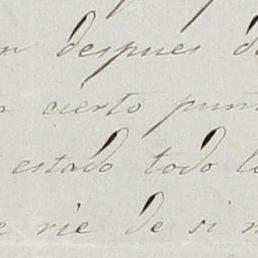 n despues d
cierto pun
estado todo l
e rie de si n